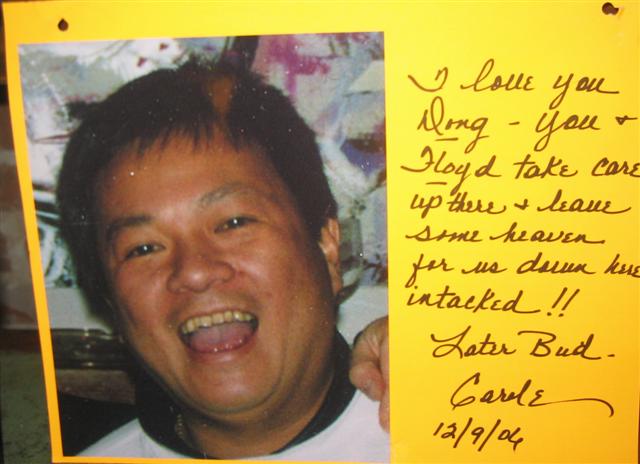 I love you
Dong - you +
Floyd take care
up there + leave
some heaven
for us down here
intacked !!
Later Bud -
Carole
12/9/06